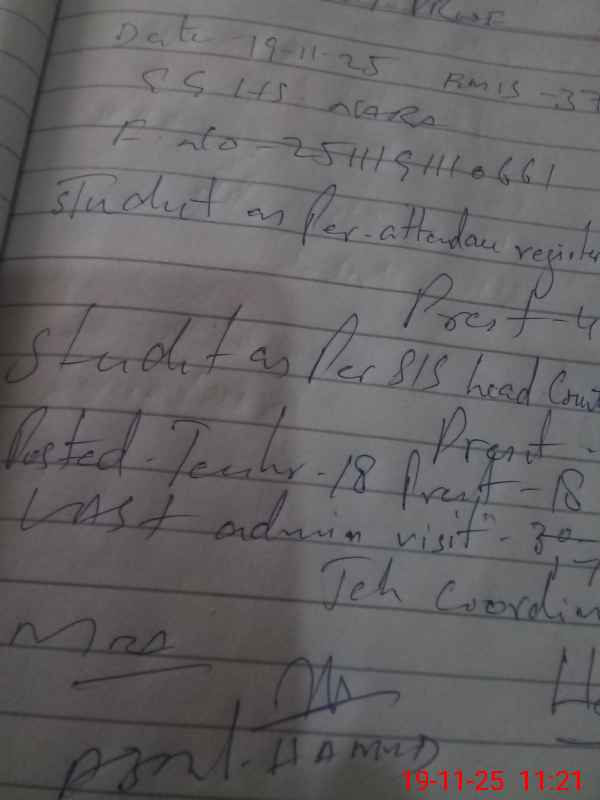 Date 19-11-25 EMIS -37
GGHS NARA
F. No - 2511191110661
Student as Per attendance register
Prest - 4
Student as Per SIS head Count
Presnt -
Posted - Teachr - 18 Presnt - 18
Last admin visit - 30
Teh Coordin
MEA
HAMID
19-11-25 11:21